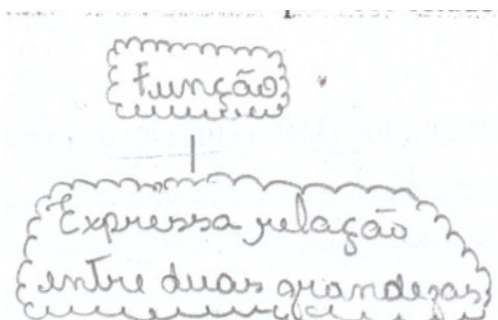 Função
Expressa relação
entre duas grandezas